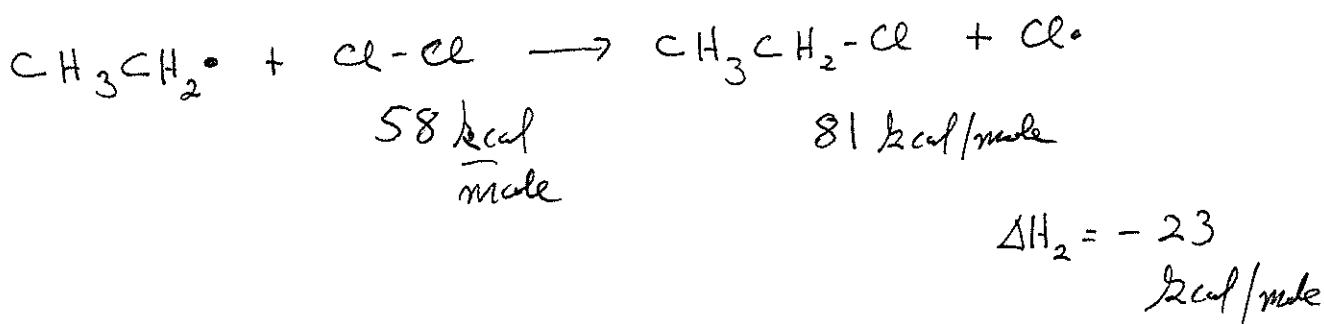 CH₃CH₂• + Cl-Cl ⟶ CH₃CH₂-Cl + Cl•
58 kcal 81 kcal/mole
mole
ΔH₂ = - 23
kcal/mole